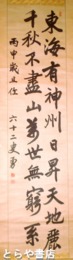 東海有神州日昇天地麗
千秋不盡山萬世無窮系
丙申歳一住
六十二叟
とらや書店